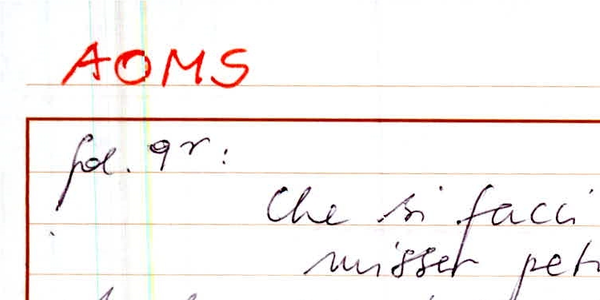 AOMS
fol. 9r:
Che si facci
misser pet